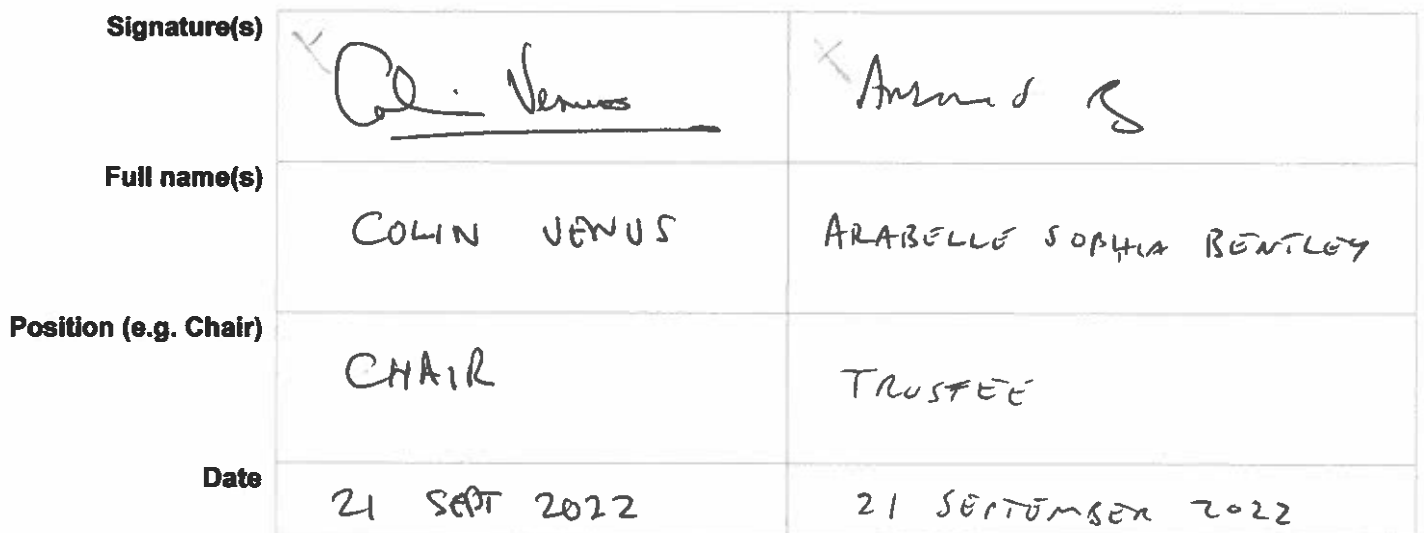 Signature(s) Colin Venus
Full name(s) COLIN VENUS ARABELLE SOPHIA BENTLEY
Position (e.g. Chair) CHAIR TRUSTEE
Date 21 SEPT 2022 21 SEPTEMBER 2022